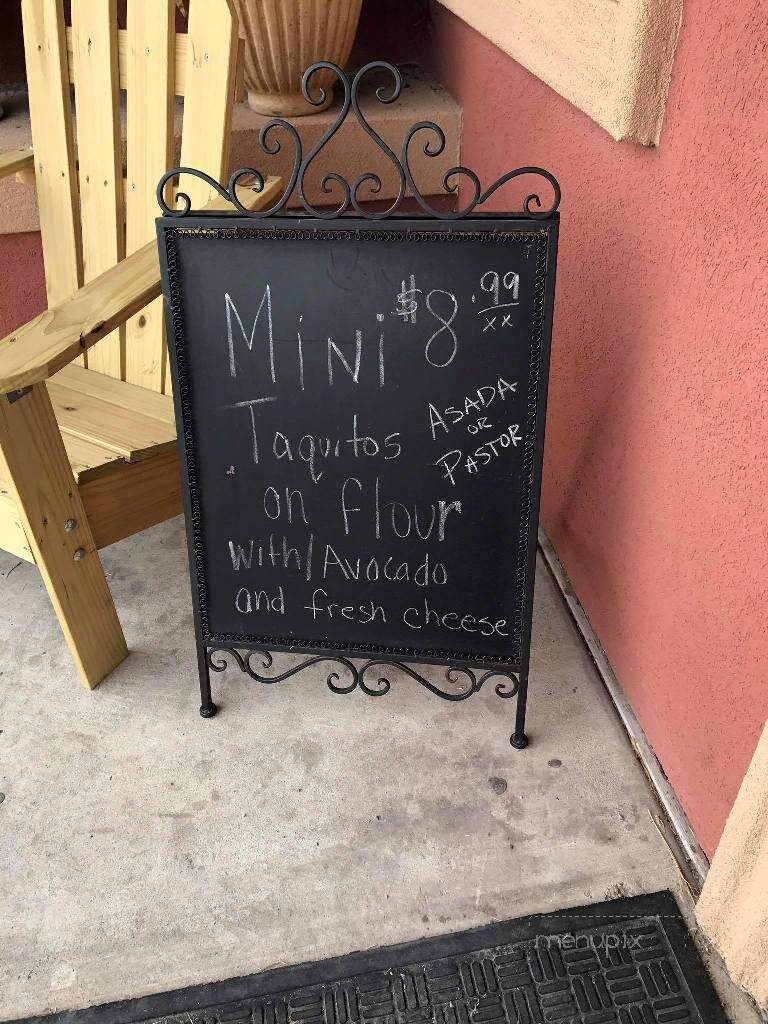 Mini $8.99
xx
Taquitos
ASADA
OR
PASTOR
on flour
with/Avocado
and fresh cheese
menupix